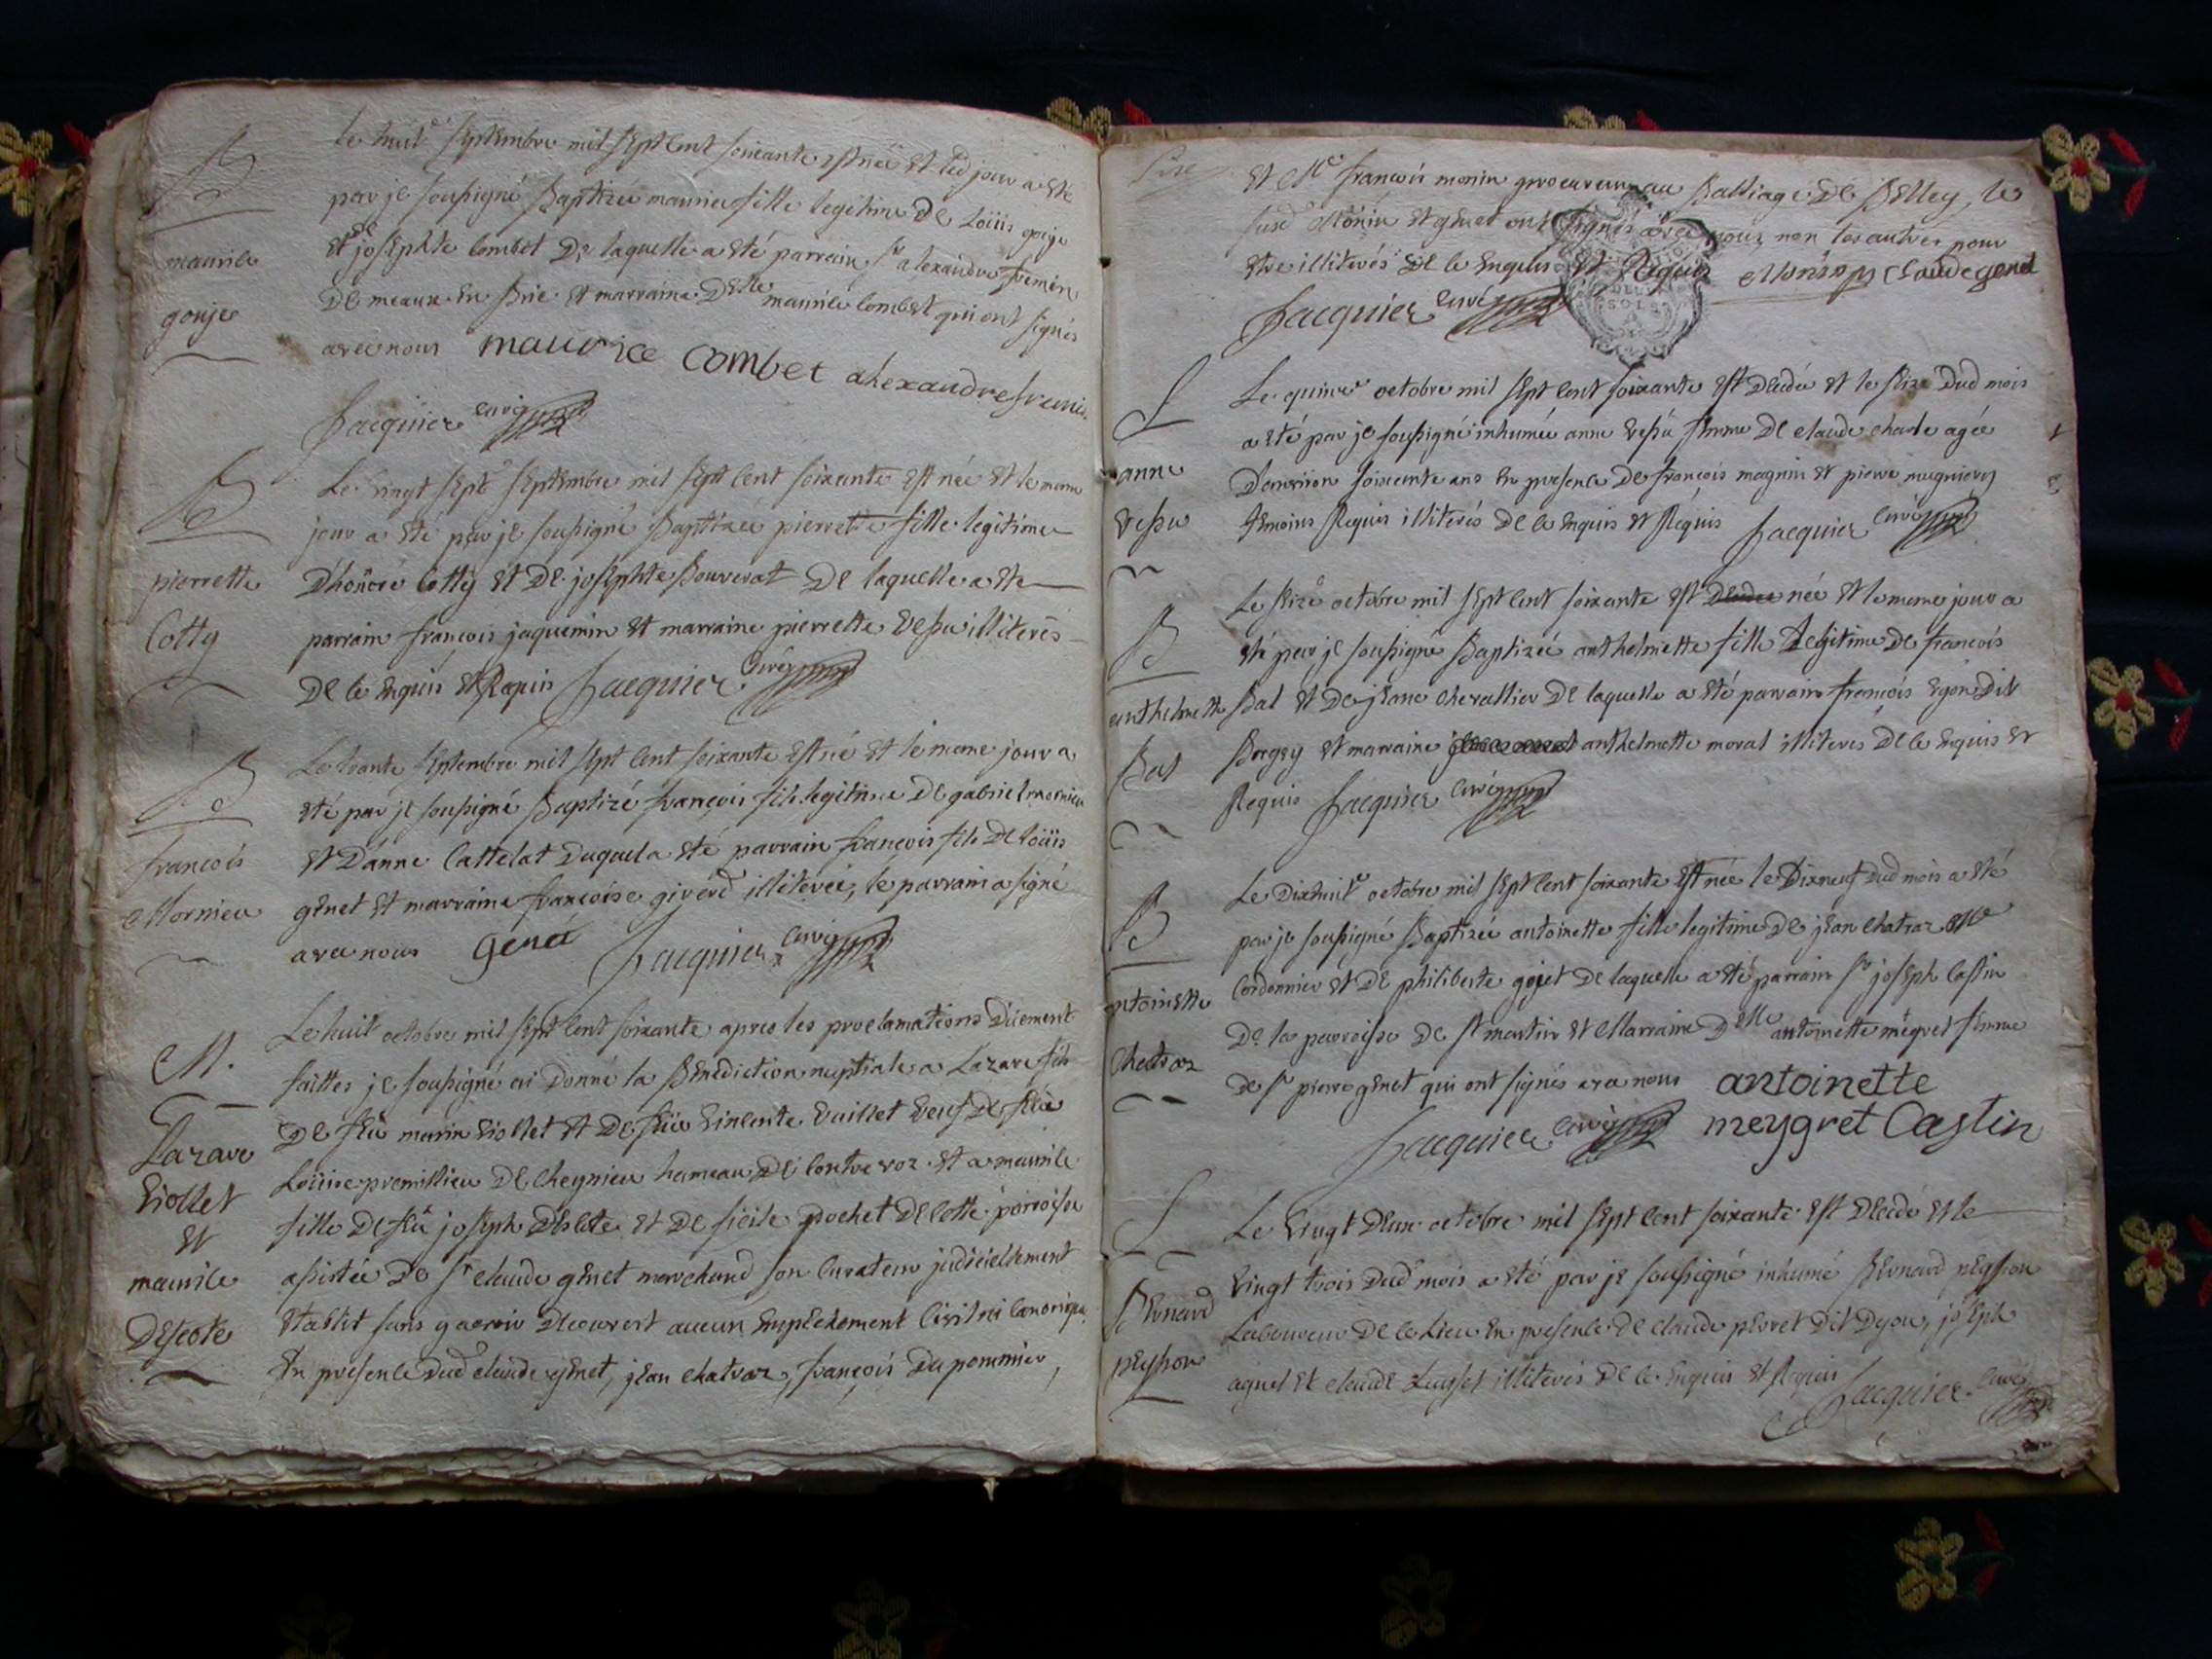 B
maurice
gonje
le huit septembre mil sept cent soixante est née et led jour a été
par je soussigné Baptizée maurice fille legitime De Loüis gonje
et De josephte Combet De laquelle a eté parrain Sr alexandre fremin
De meaux en Brie et marraine Delle maurice Combet qui ont signés
avec nous maurice Combet alexandre fremin
Jacquier curé
B
pierrette
Cotty
Le vingt sept septembre mil sept cent soixante est née et le meme
jour a eté par je soussigné Baptizée pierrette fille legitime
D'honoré Cotty et De josephte Bouverat De laquelle a ete
parrain françois jaquemin et marraine pierrette Vepu illiterés
De ce enquis et Requis Jacquier Curé
B
françois
Mornieu
Le trante septembre mil sept cent soixante est né et le meme jour a
eté par je soussigné Baptizé françois fils legitime De gabriel mornieu
et D'anne Cattelat Duquel a eté parrain françois fils De Loüis
genet et marraine françoise girerd illiterée, le parrain a signé
avec nous genet Jacquier Curé
M.
Lazare
Viollet
et
maurice
Descote
Le huit octobre mil sept cent soixante apres les proclamations Düement
faittes je soussigné ai Donné la Benediction nuptiale a Lazare fils
De feu marin Viollet et De feüe Vincente Vuillet Veuf De feüe
Loüise premillieu De Cheynieu hameau De Contrevoz et a maurice
fille De feu joseph Descote et De sicile pochet De cette parroisse
assistée De Sr claude genet marchand son Curateur judiciellement
etablit sans y avoir Decouvert aucun empechement Civil ni Canonique
En presence Dud claude genet, jean chatraz, françois Du pommier,
et Me françois monin procureur au Balliage De Belley, le
susd Monin et genet ont signés avec nous non les autres pour
etre illiterés De ce enquis et Requis Monin claude genet
Jacquier curé
S
anne
Vepu
Le quinze octobre mil sept cent soixante est Decedée et le seize Dud mois
a eté par je soussigné inhumée anne Vepu femme De claude charle agée
D'environ soixante ans en presence De françois magnin et pierre mugniery
temoins Requis illiterés De ce enquis et Requis Jacquier Curé
B
anthelmette
Bal
Le seize octobre mil sept cent soixante est née et le meme jour a
eté par je soussigné Baptizée anthelmette fille Legitime De françois
Bal et De jeane chevallier De laquelle a eté parrain françois Dit
Bugey et marraine anthelmette moral illiterés De ce enquis et
Requis Jacquier Curé
B
antoinette
Chatraz
Le Dixhuit octobre mil sept cent soixante est née le Dixneuf Dud mois a eté
par je soussigné Baptizée antoinette fille legitime De jean chatraz Me
Cordonnier et De philiberte gojet De laquelle a eté parrain Sr joseph Castin
De la parroisse De St martin et Marraine Delle antoinette megret femme
De Sr pierre genet qui ont signés avec nous antoinette
Jacquier Curé meygret Castin
S
Bernard
peysson
Le Vingt Deux octobre mil sept cent soixante est Decedé et le
Vingt trois Dud mois a eté par je soussigné inhumé Bernard peysson
Laboureur De ce Lieu en presence De claude Dit Dejou, joseph
agnel et claude illiterés De ce enquis et Requis Jacquier Curé